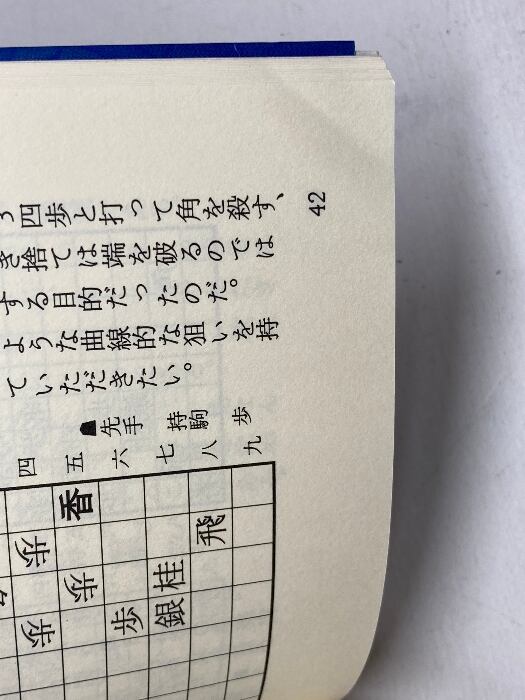 四歩と打って角を殺す、
き捨ては端を破るのでは
する目的だったのだ。
ような曲線的な狙いを持
ていただきたい。
42
☗先手 持駒 歩
四 五 六 七 八 九
香
歩 飛
歩 桂
歩 歩 銀